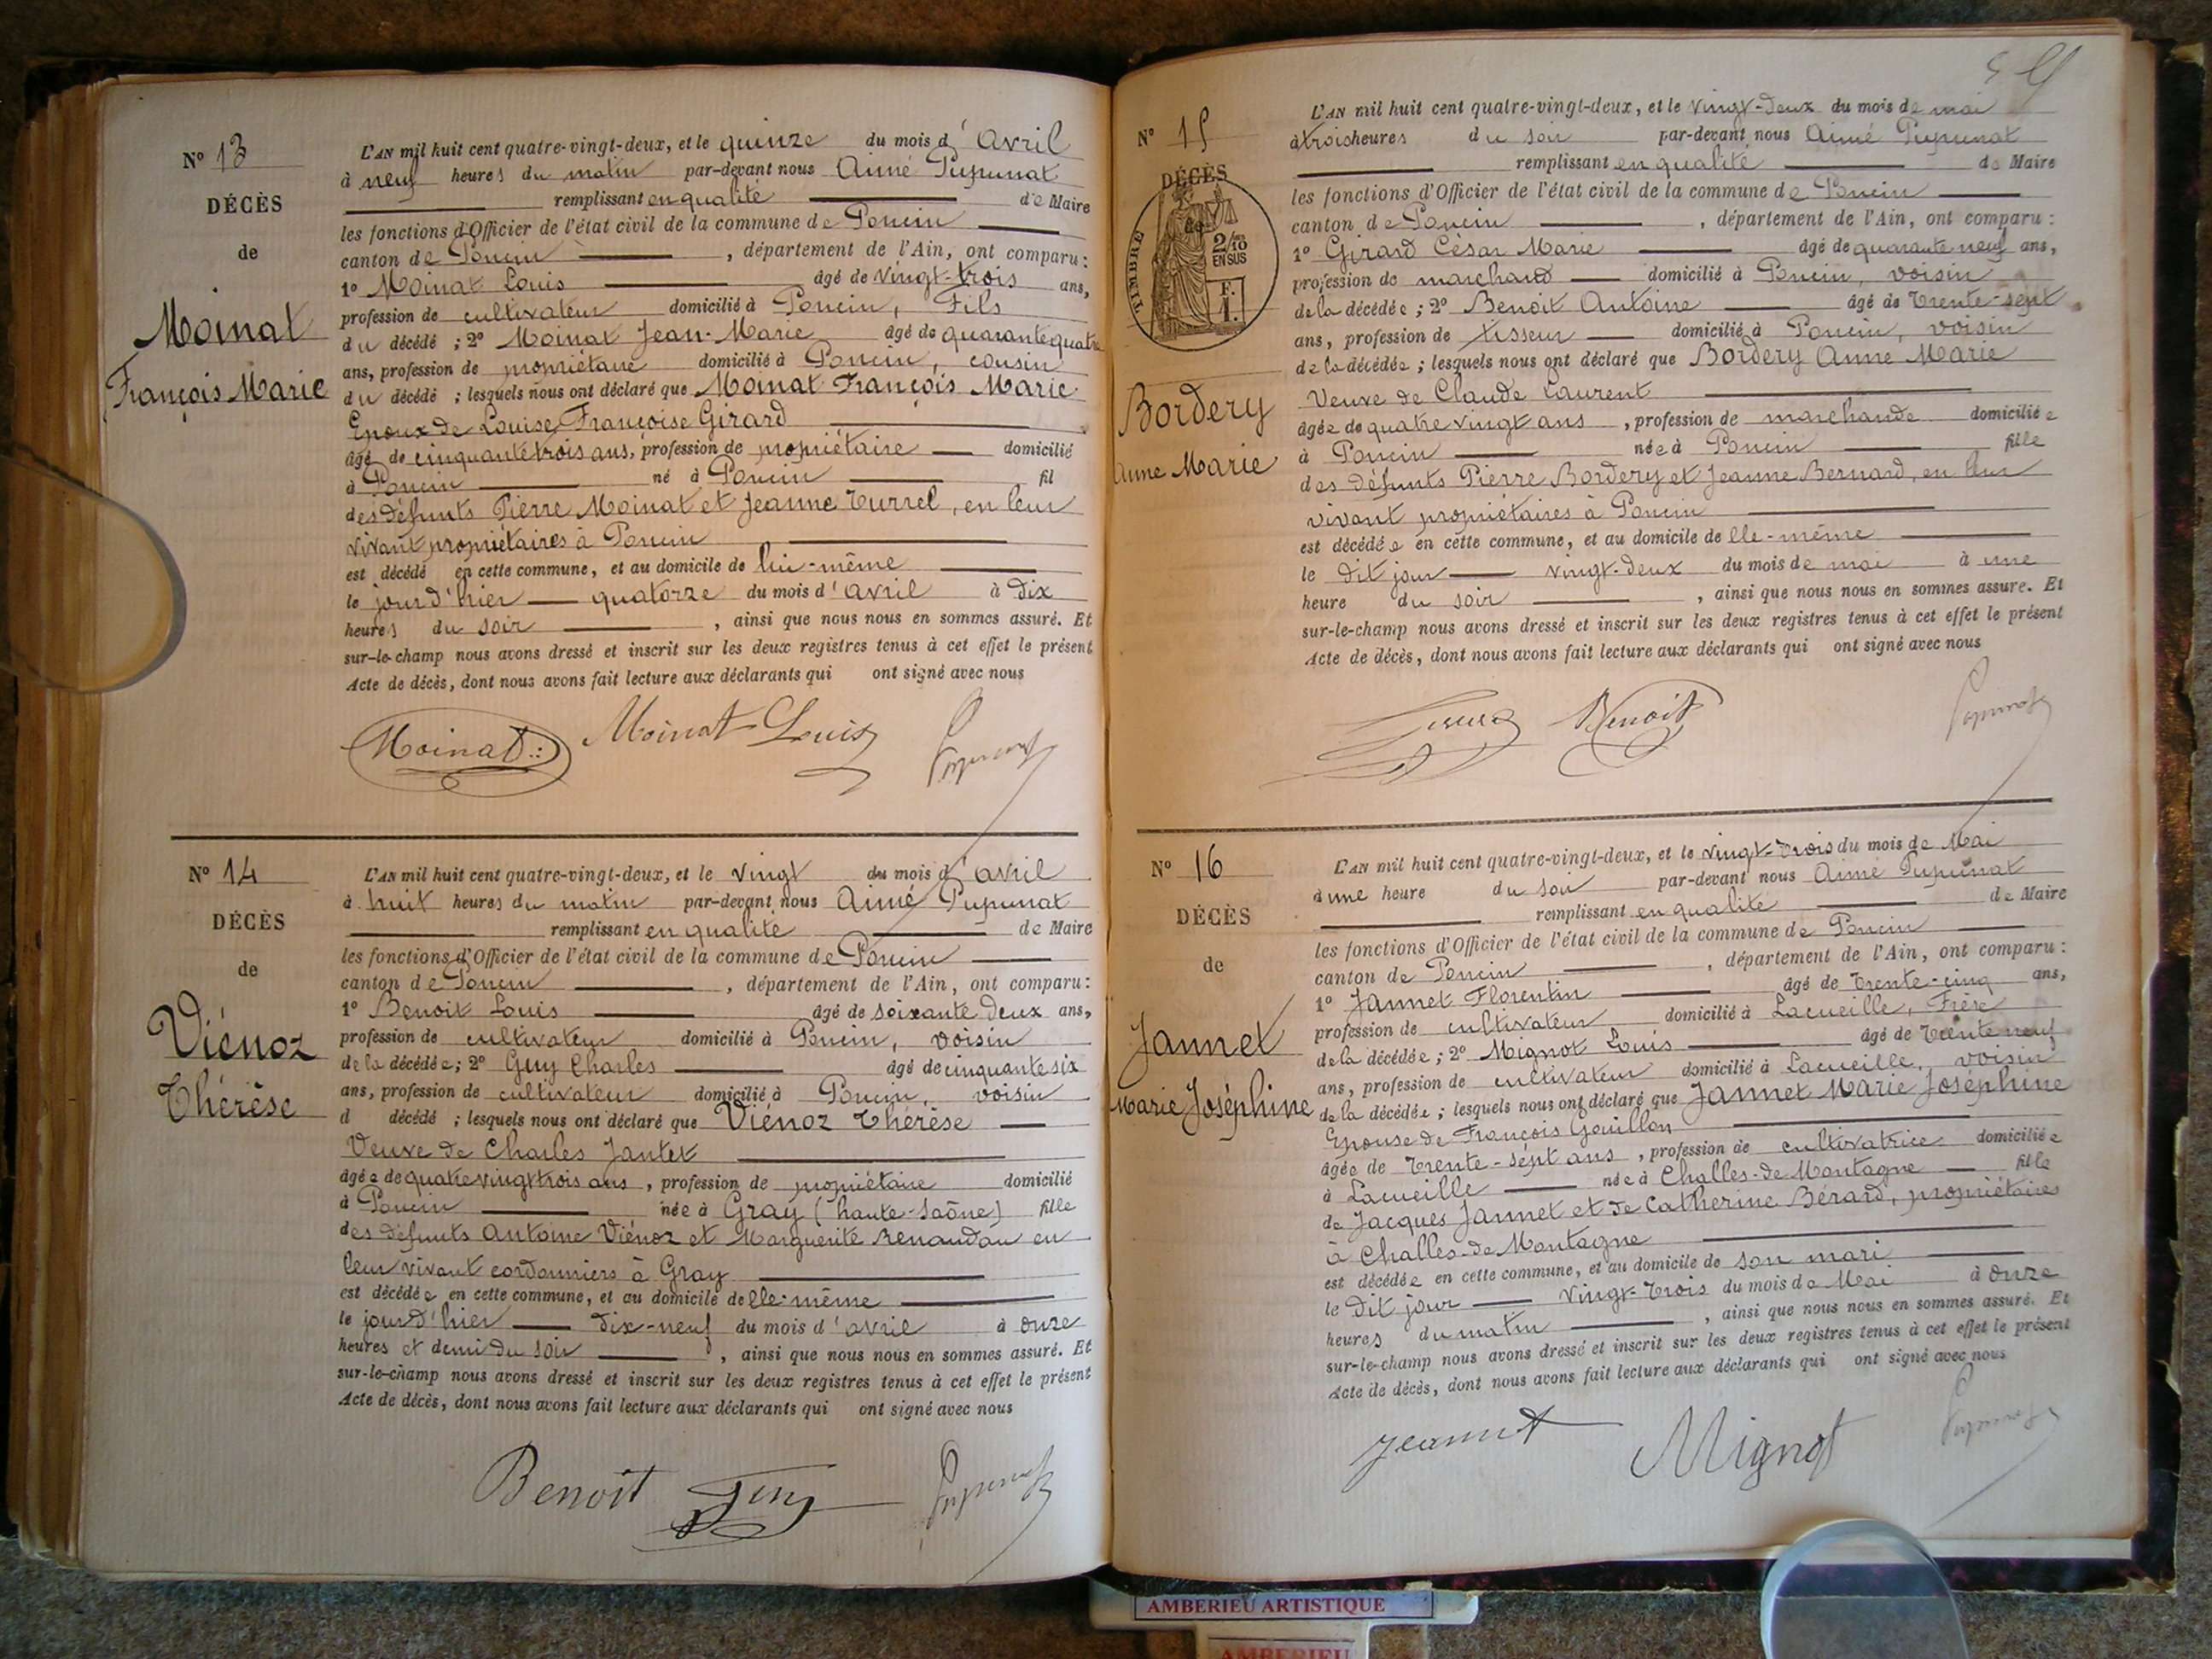 N° 13
DÉCÈS
de
Moinat
François Marie
L'AN mil huit cent quatre-vingt-deux, et le quinze du mois d'Avril
à neuf heures du matin par-devant nous Aimé Pupunat
remplissant en qualité de Maire
les fonctions d'Officier de l'état civil de la commune de Poncin
canton de Poncin, département de l'Ain, ont comparu :
1° Moinat Louis âgé de vingt-trois ans,
profession de cultivateur domicilié à Poncin, Fils
du décédé ; 2° Moinat Jean-Marie âgé de quarante quatre
ans, profession de propriétaire domicilié à Poncin, cousin
du décédé ; lesquels nous ont déclaré que Moinat François Marie
Epoux de Louise Françoise Girard
âgé de cinquante trois ans, profession de propriétaire domicilié
à Poncin né à Poncin fil
des défunts Pierre Moinat et Jeanne Turrel, en leur
vivant propriétaires à Poncin
est décédé en cette commune, et au domicile de lui-même
le jour d'hier quatorze du mois d'avril à dix
heures du soir, ainsi que nous nous en sommes assuré. Et
sur-le-champ nous avons dressé et inscrit sur les deux registres tenus à cet effet le présent
Acte de décès, dont nous avons fait lecture aux déclarants qui ont signé avec nous
Moinat Moinat Louis Pupunat
N° 14
DÉCÈS
de
Viénoz
Thérèse
L'AN mil huit cent quatre-vingt-deux, et le vingt du mois d'avril
à huit heures du matin par-devant nous Aimé Pupunat
remplissant en qualité de Maire
les fonctions d'Officier de l'état civil de la commune de Poncin
canton de Poncin, département de l'Ain, ont comparu :
1° Benoit Louis âgé de soixante deux ans,
profession de cultivateur domicilié à Poncin, voisin
de la décédée ; 2° Guy Charles âgé de cinquante six
ans, profession de cultivateur domicilié à Poncin, voisin
d décédé ; lesquels nous ont déclaré que Viénoz Thérèse
Veuve de Charles Jantet
âgée de quatre vingt trois ans, profession de propriétaire domicilié
à Poncin née à Gray (haute-Saône) fille
des défunts Antoine Viénoz et Marguerite Renaudau en
leur vivant cordonniers à Gray
est décédée en cette commune, et au domicile delle-même
le jour d'hier dix-neuf du mois d'avril à onze
heures et demi du soir, ainsi que nous nous en sommes assuré. Et
sur-le-champ nous avons dressé et inscrit sur les deux registres tenus à cet effet le présent
Acte de décès, dont nous avons fait lecture aux déclarants qui ont signé avec nous
Benoit Guy Pupunat
N° 15
DÉCÈS
de
TIMBRE
2/10
EN SUS
F.
1.
Bordery
Anne Marie
L'AN mil huit cent quatre-vingt-deux, et le vingt-deux du mois de mai
à trois heures du soir par-devant nous Aimé Pupunat
remplissant en qualité de Maire
les fonctions d'Officier de l'état civil de la commune de Poncin
canton de Poncin, département de l'Ain, ont comparu :
1° Girard César Marie âgé de quarante neuf ans,
profession de marchand domicilié à Poncin, voisin
de la décédée ; 2° Benoit Antoine âgé de trente-sept
ans, profession de tisseur domicilié à Poncin, voisin
de la décédée ; lesquels nous ont déclaré que Bordery Anne Marie
Veuve de Claude Laurent
âgée de quatre vingt ans, profession de marchande domiciliée
à Poncin née à Poncin fille
des défunts Pierre Bordery et Jeanne Bernard, en leur
vivant propriétaires à Poncin
est décédée en cette commune, et au domicile de lle-même
le dit jour vingt-deux du mois de mai à une
heure du soir, ainsi que nous nous en sommes assure. Et
sur-le-champ nous avons dressé et inscrit sur les deux registres tenus à cet effet le présent
Acte de décès, dont nous avons fait lecture aux déclarants qui ont signé avec nous
Benoit Pupunat
N° 16
DÉCÈS
de
Jannet
Marie Joséphine
L'AN mil huit cent quatre-vingt-deux, et le vingt-trois du mois de Mai
à une heure du soir par-devant nous Aimé Pupunat
remplissant en qualité de Maire
les fonctions d'Officier de l'état civil de la commune de Poncin
canton de Poncin, département de l'Ain, ont comparu :
1° Jannet Florentin âgé de trente-cinq ans,
profession de cultivateur domicilié à Lacueille, Frère
de la décédée ; 2° Mignot Louis âgé de trente neuf
ans, profession de cultivateur domicilié à Lacueille, voisin
de la décédée ; lesquels nous ont déclaré que Jannet Marie Joséphine
Epouse de François Gouillon
âgée de trente-sept ans, profession de cultivatrice domiciliée
à Lacueille née à Challes-de-Montagne fille
de Jacques Jannet et de Catherine Bérard, propriétaires
à Challes-de-Montagne
est décédée en cette commune, et au domicile de son mari
le dit jour vingt-trois du mois de Mai à onze
heures du matin, ainsi que nous nous en sommes assuré. Et
sur-le-champ nous avons dressé et inscrit sur les deux registres tenus à cet effet le présent
Acte de décès, dont nous avons fait lecture aux déclarants qui ont signé avec nous
Jeannet Mignot Pupunat
AMBERIEU ARTISTIQUE
AMBERIEU